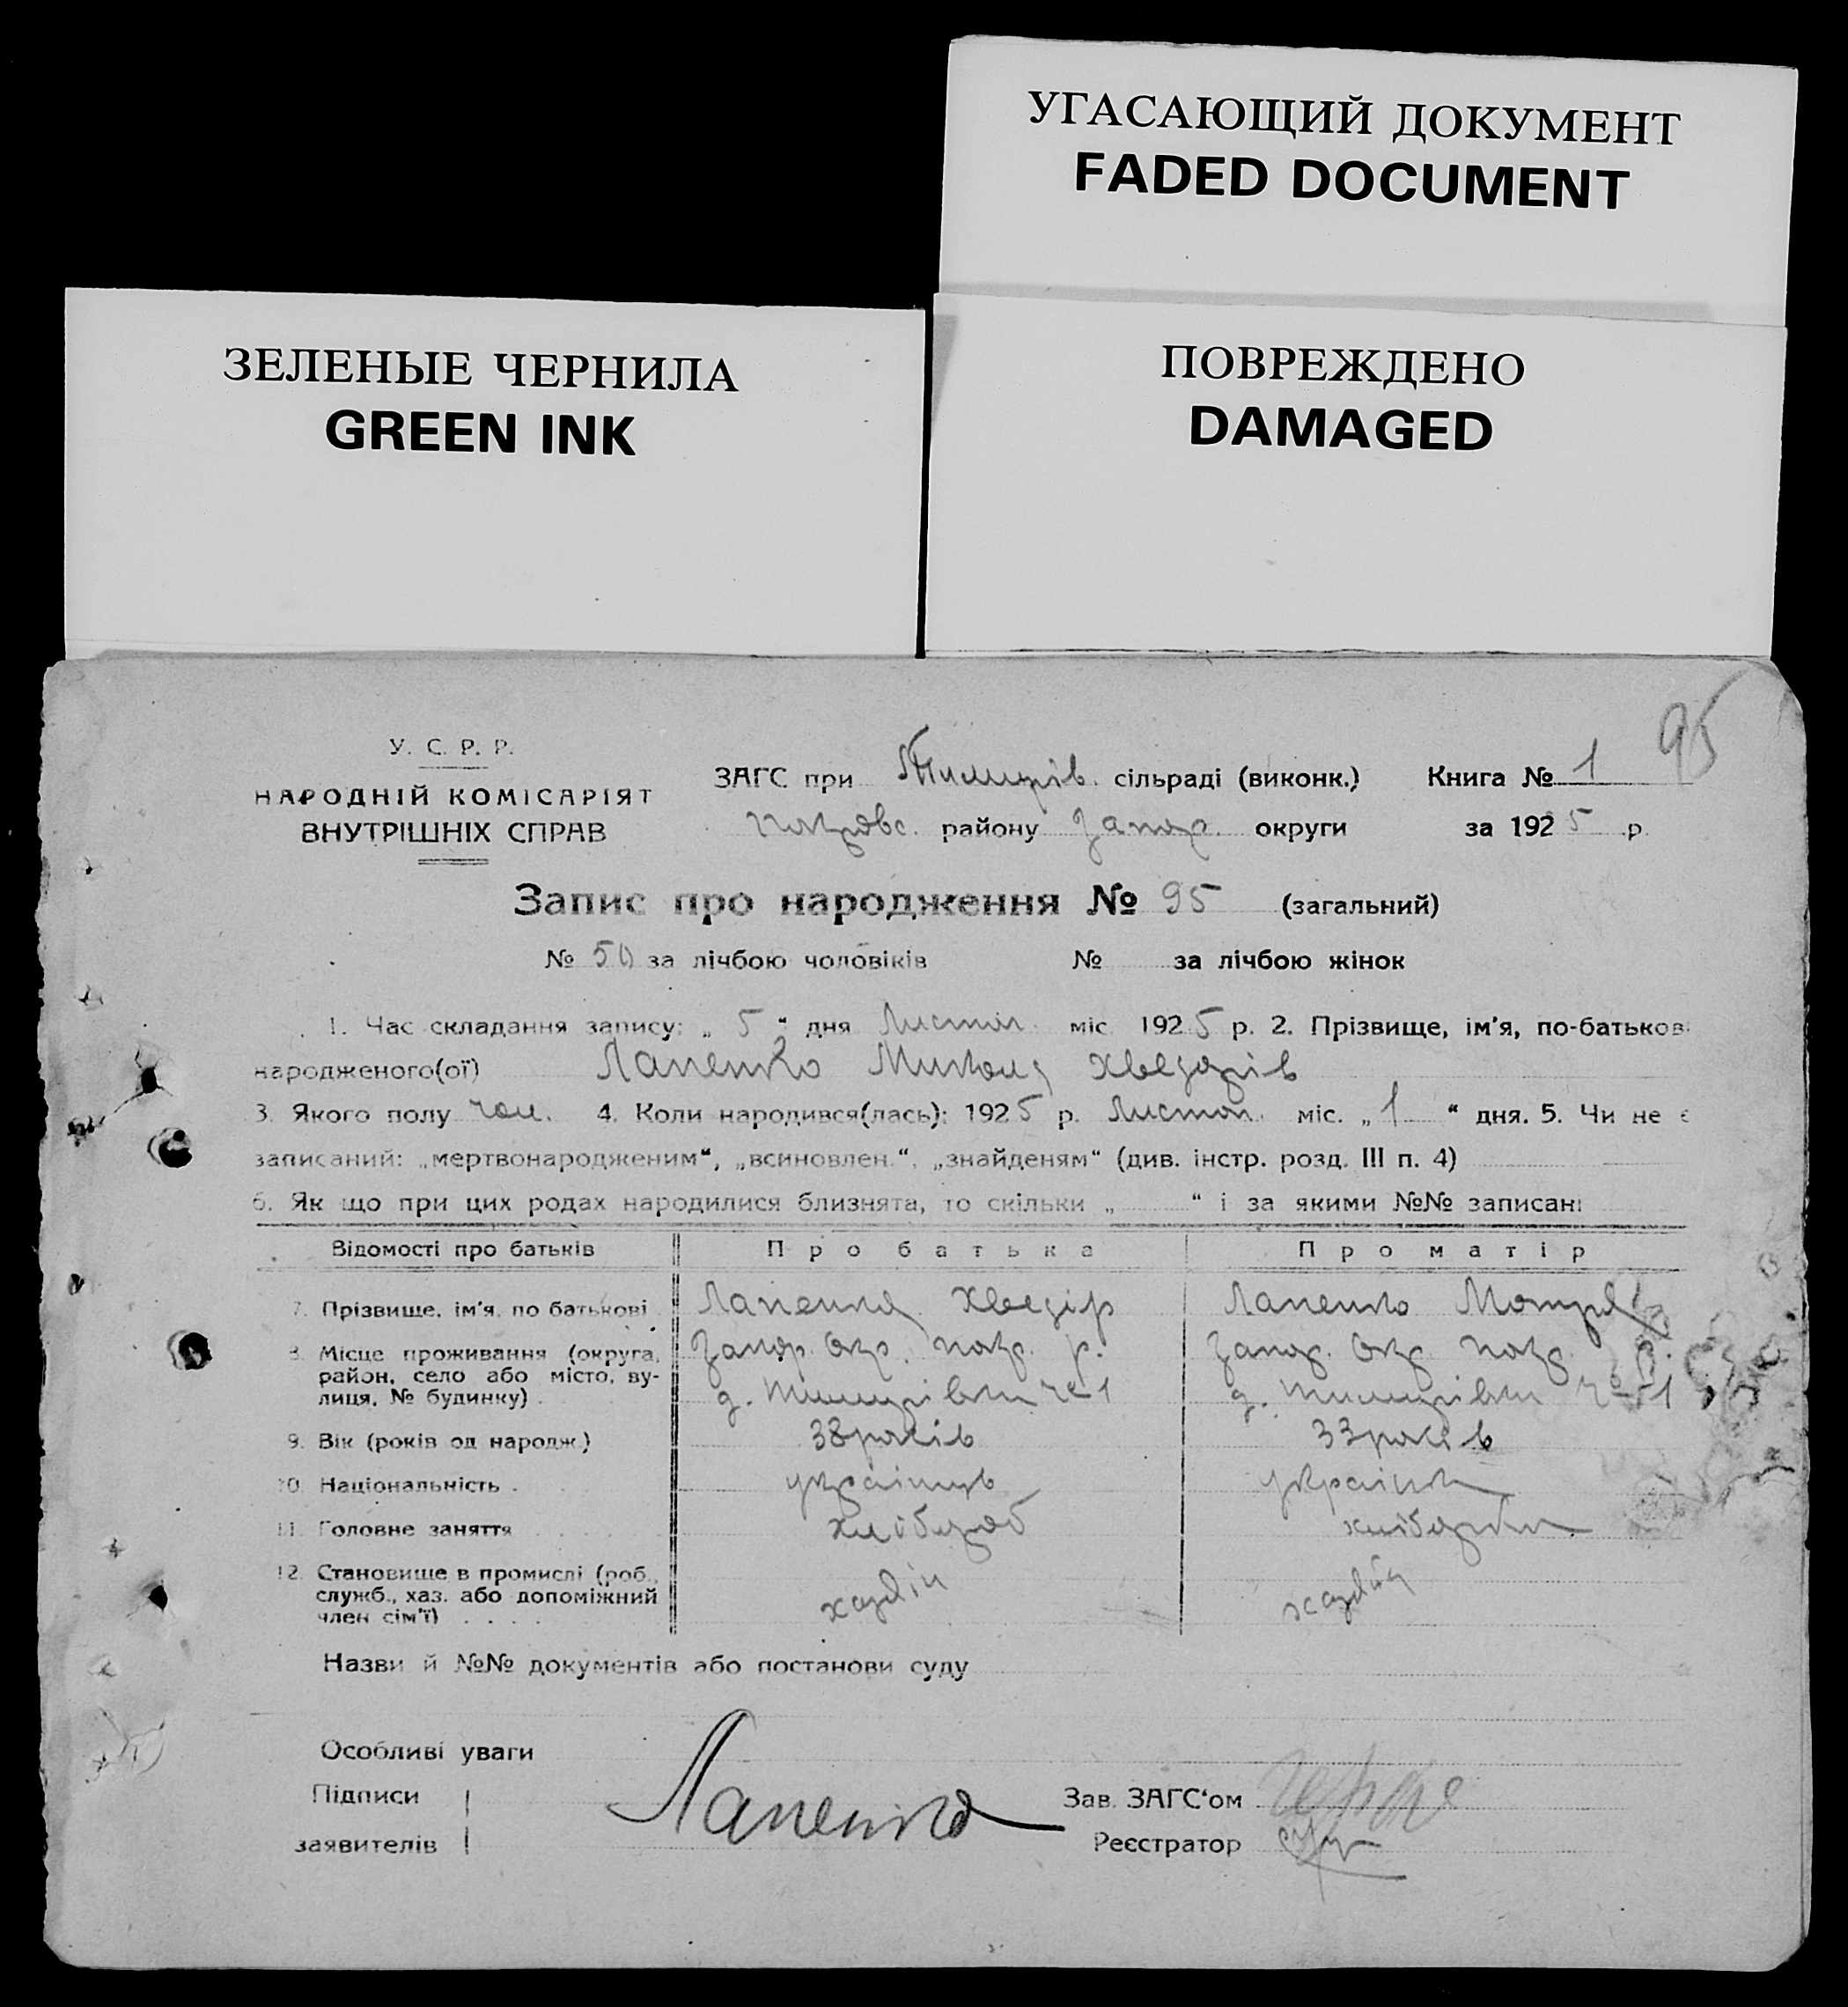 УГАСАЮЩИЙ ДОКУМЕНТ
FADED DOCUMENT
ЗЕЛЕНЫЕ ЧЕРНИЛА
GREEN INK
ПОВРЕЖДЕНО
DAMAGED
95
У. С. Р. Р.
НАРОДНІЙ КОМІСАРІЯТ
ВНУТРІШНІХ СПРАВ
ЗАГС при сільраді (виконк.) Книга № 1
району Запор. округи за 1925 р.
Запис про народження № 95 (загальний)
№ 50 за лічбою чоловіків № за лічбою жінок
1. Час складання запису: „ 5 “ дня Листоп. міс 1925 р. 2. Прізвище, ім'я, по-батькові
народженого(ої) Лапенко Микола Хведорів
3. Якого полу чол. 4. Коли народився(лась): 1925 р. Листоп. міс. „ 1 “ дня. 5. Чи не є
записаний: „мертвонародженим“, „всиновлен.“, „знайденям“ (див. інстр. розд. III п. 4)
6. Як що при цих родах народилися близнята, то скільки „ “ і за якими №№ записані
Відомості про батьків Про батька Про матір
7. Прізвище, ім'я, по батькові Лапенко Хведір Лапенко Мотря
8. Місце проживання (округа, Запор. Окр. Покр. р. Запор. Окр. Покр. р.
район, село або місто, ву-
лиця, № будинку) .
9. Вік (років од народж.) 38 років 33 років
10. Національність . українець українка
11. Головне заняття хлібороб хліборобка
12. Становище в промислі (роб.,
служб., хаз. або допоміжний хазяїн хазяйка
член сім'ї)
Назви й №№ документів або постанови суду
Особливі уваги
Підписи
заявителів Лапенко
Зав. ЗАГС'ом
Реєстратор